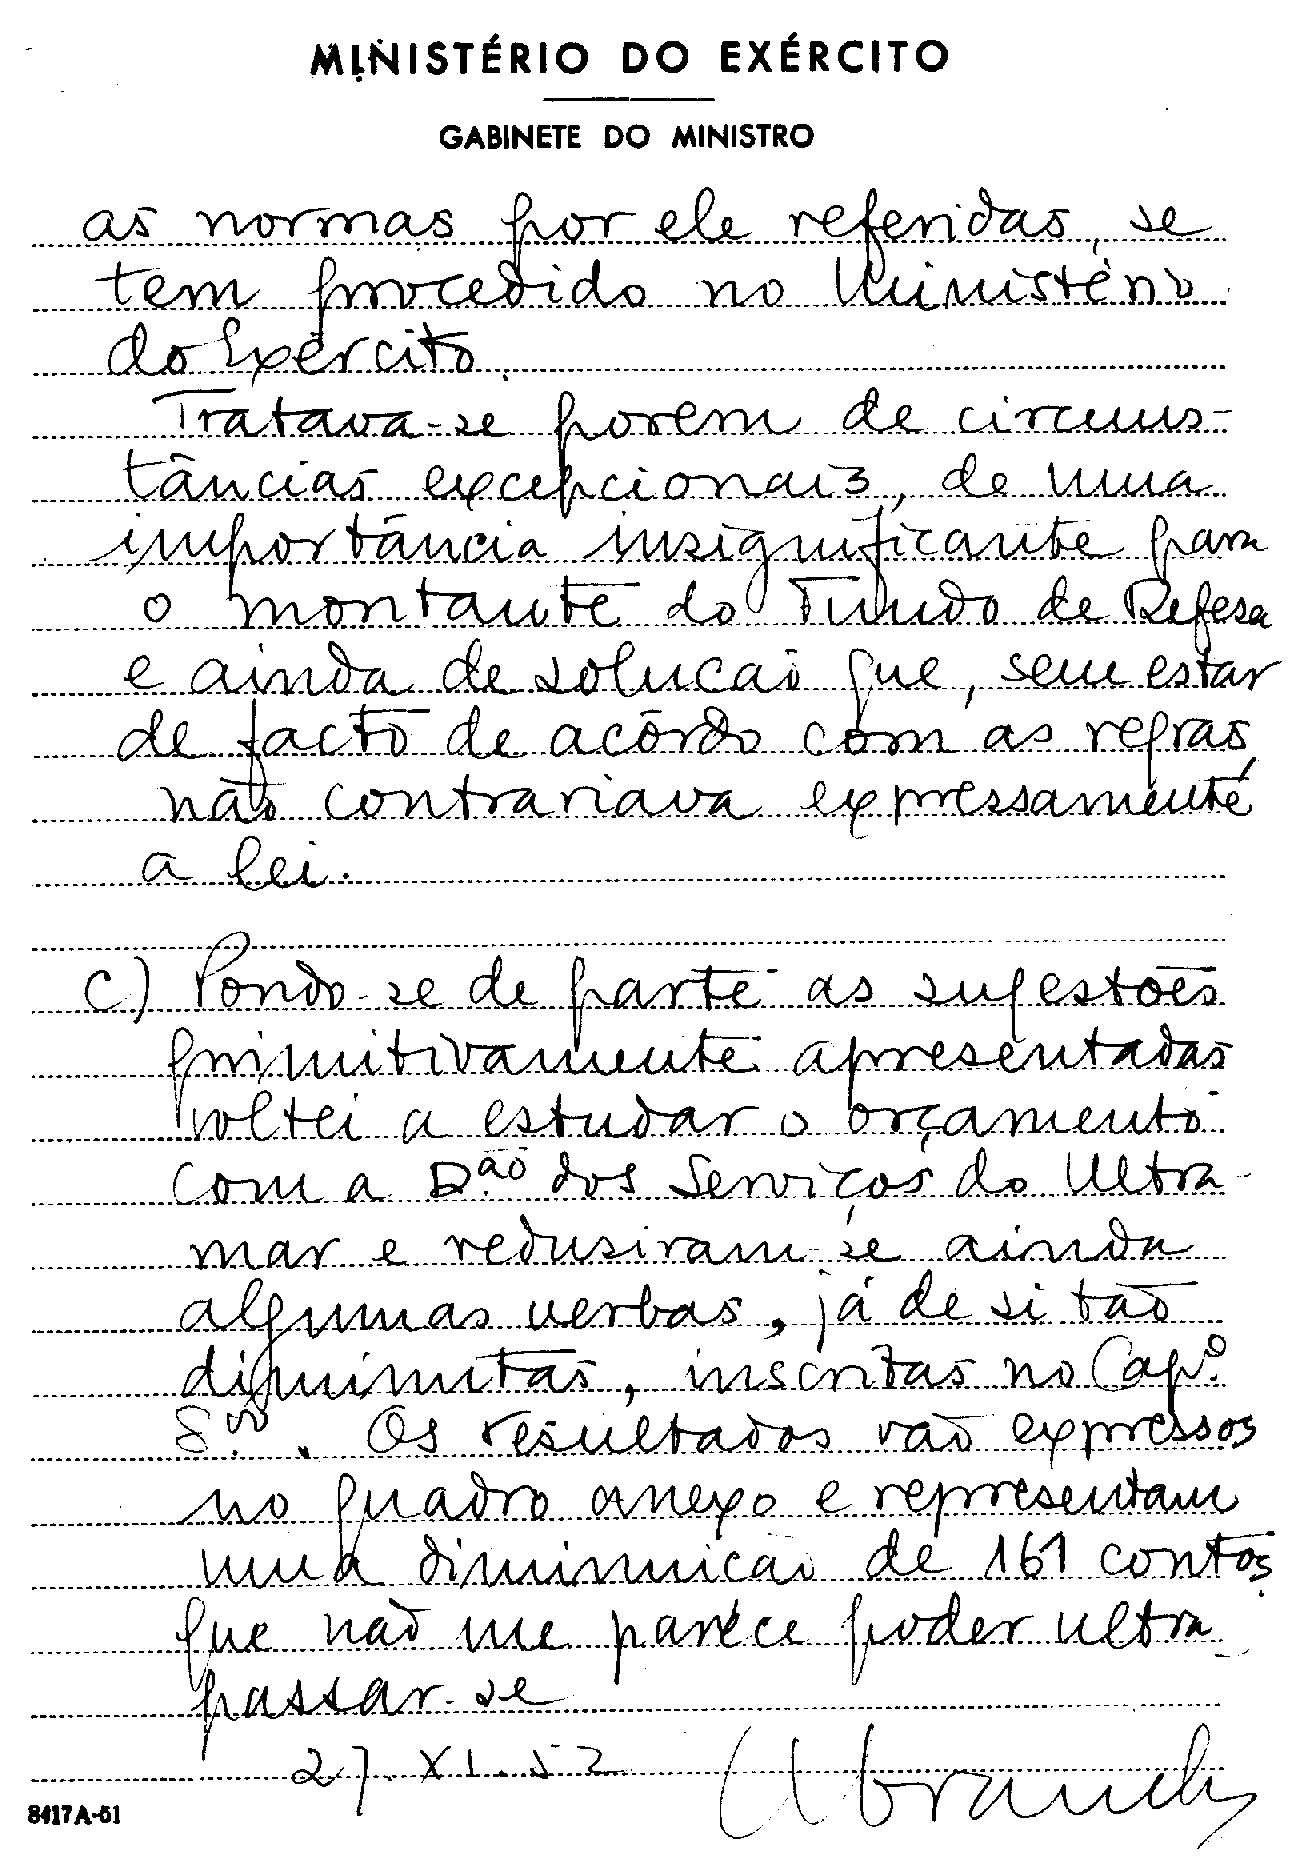 MINISTÉRIO DO EXÉRCITO
GABINETE DO MINISTRO
as normas por ele referidas, se
tem procedido no Ministério
do Exército.
Tratava-se porem de circuns-
tâncias excepcionais, de uma
importância insignificante para
o montante do Fundo de Defesa
e ainda de solucão que, sem estar
de facto de acôrdo com as regras,
não contrariava expressamente
a lei.
c) Pondo-se de parte as sugestões
primitivamente apresentadas
voltei a estudar o orçamento
com a D.ão dos Serviços do Ultra-
mar e redusiram-se ainda
algumas verbas, já de si tão
diminutas, inscritas no Cap.º
8.º. Os resultados vão expressos
no quadro anexo e representam
uma diminuicão de 161 contos,
que não me parece poder ultra-
passar-se
27.XI.52 Abranches
8417A-51